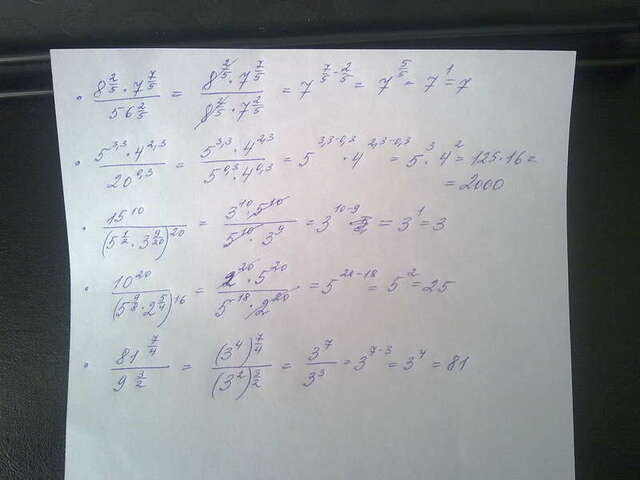 • 8^(2/5) · 7^(7/5) / 56^(2/5) = 8^(2/5) · 7^(7/5) / 8^(2/5) · 7^(2/5) = 7^(7/5 - 2/5) = 7^(5/5) = 7^1 = 7
• 5^3,3 · 4^2,3 / 20^0,3 = 5^3,3 · 4^2,3 / 5^0,3 · 4^0,3 = 5^3,3-0,3 · 4^2,3-0,3 = 5^3 · 4^2 = 125·16 =
= 2000
• 15^10 / (5^(1/2) · 3^(9/20))^20 = 3^10 · 5^10 / 5^10 · 3^9 = 3^10-9 = 3^1 = 3
• 10^20 / (5^(9/8) · 2^(5/4))^16 = 2^20 · 5^20 / 5^18 · 2^20 = 5^20-18 = 5^2 = 25
• 81^(7/4) / 9^(3/2) = (3^4)^(7/4) / (3^2)^(3/2) = 3^7 / 3^3 = 3^7-3 = 3^4 = 81